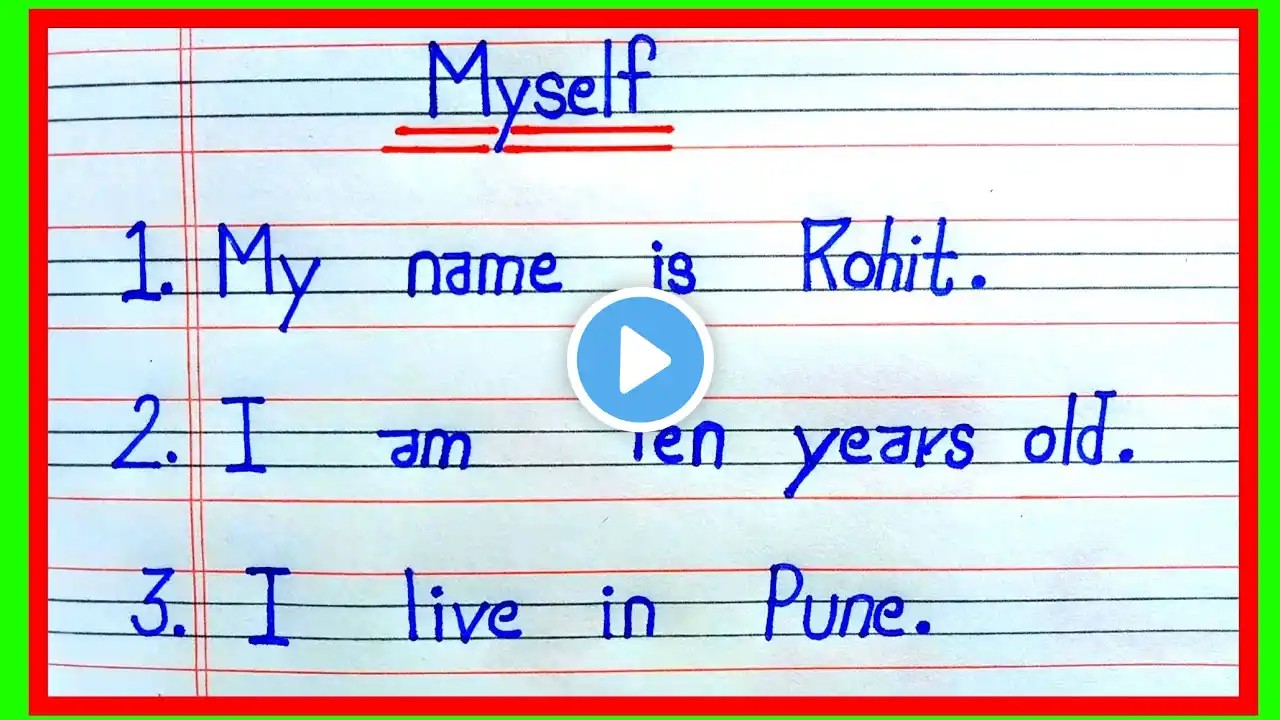 Myself
1. My name is Rohit.
2. I am ten years old.
3. I live in Pune.